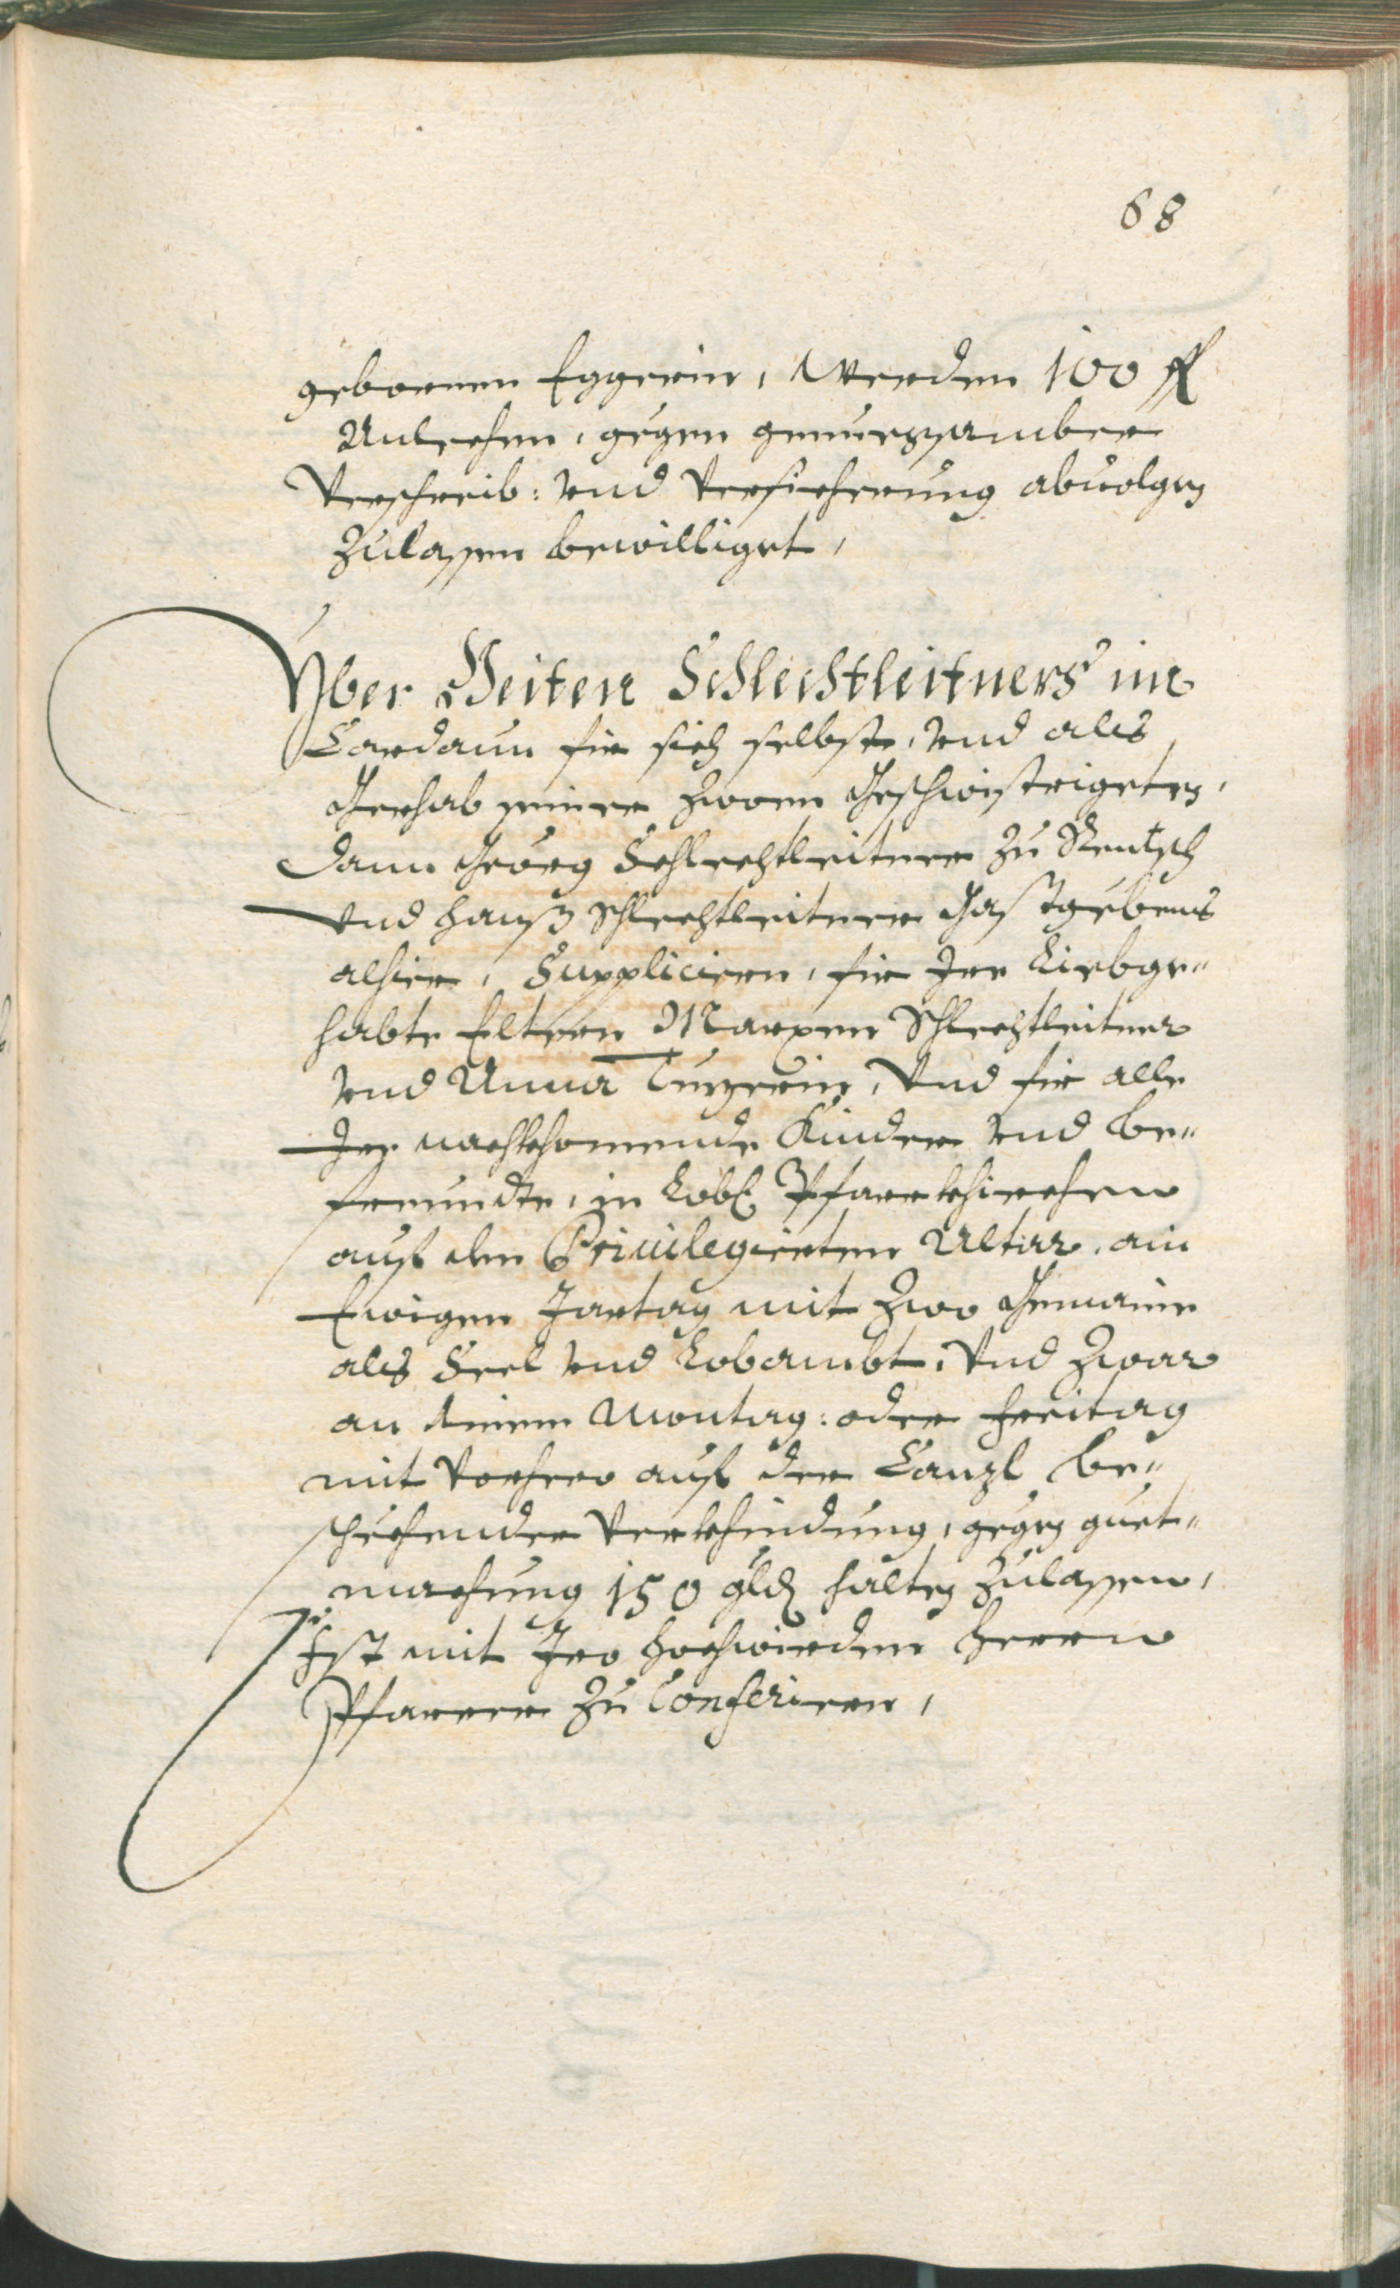 68
gebornen Eggerin, Werden 100 fl
Anlechen, gegen genuegsamber
Verschreib: vnd Versicherung abuolgen
Zulassen bewilliget,
Yber Veiten Schlechtleitners im
Cardaun für sich selbste, vnd als
Gerhab seiner zwoen Geschwistrigeten,
dann Georg Schlechtleitner zu Rentsch
vnd hanß Schlechtleitner Gastgebens
alhier, Supplicieren, für Jer Liebge„
habte Eltern Marxen Schlechtleitner
vnd Anna, Vnd für alle
Jer nachkhomende Kinder vnd be„
freundte, in Lobl Pfarrkhirchen
auf den Priuilegierten Altar, ain
Ewigen Jartag mit zwo Gemaine
als Seel vnd Lobambt, Vnd zwar
an Ainem Montag: oder freitag
mit Vorhero auf der Canzl be„
schehender Verkhindung, gegen guet„
machung 150 gld halten zulassen,
Ist mit Jro hochwierden herrn
Pfarrer zu Conferieren,